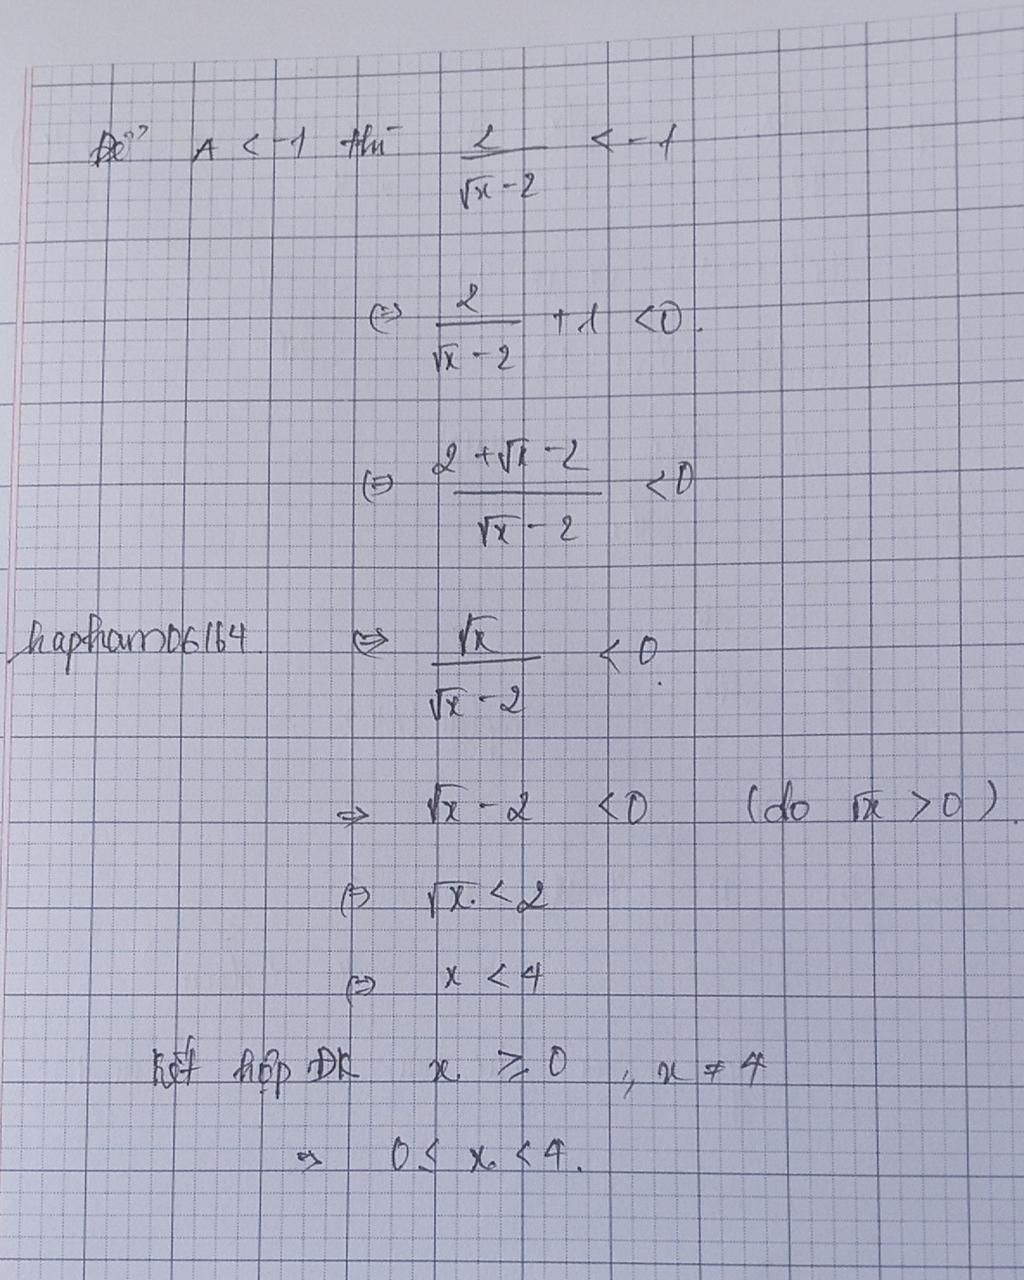 Để A < -1 thì 2/(√x - 2) < -1
⇔ 2/(√x - 2) + 1 < 0.
⇔ (2 + √x - 2)/(√x - 2) < 0
hapham06164 ⇔ √x/(√x - 2) < 0.
⇒ √x - 2 < 0 (do √x > 0).
⇔ √x < 2
⇔ x < 4
Kết hợp ĐK x ≥ 0, x ≠ 4
⇒ 0 ≤ x < 4.